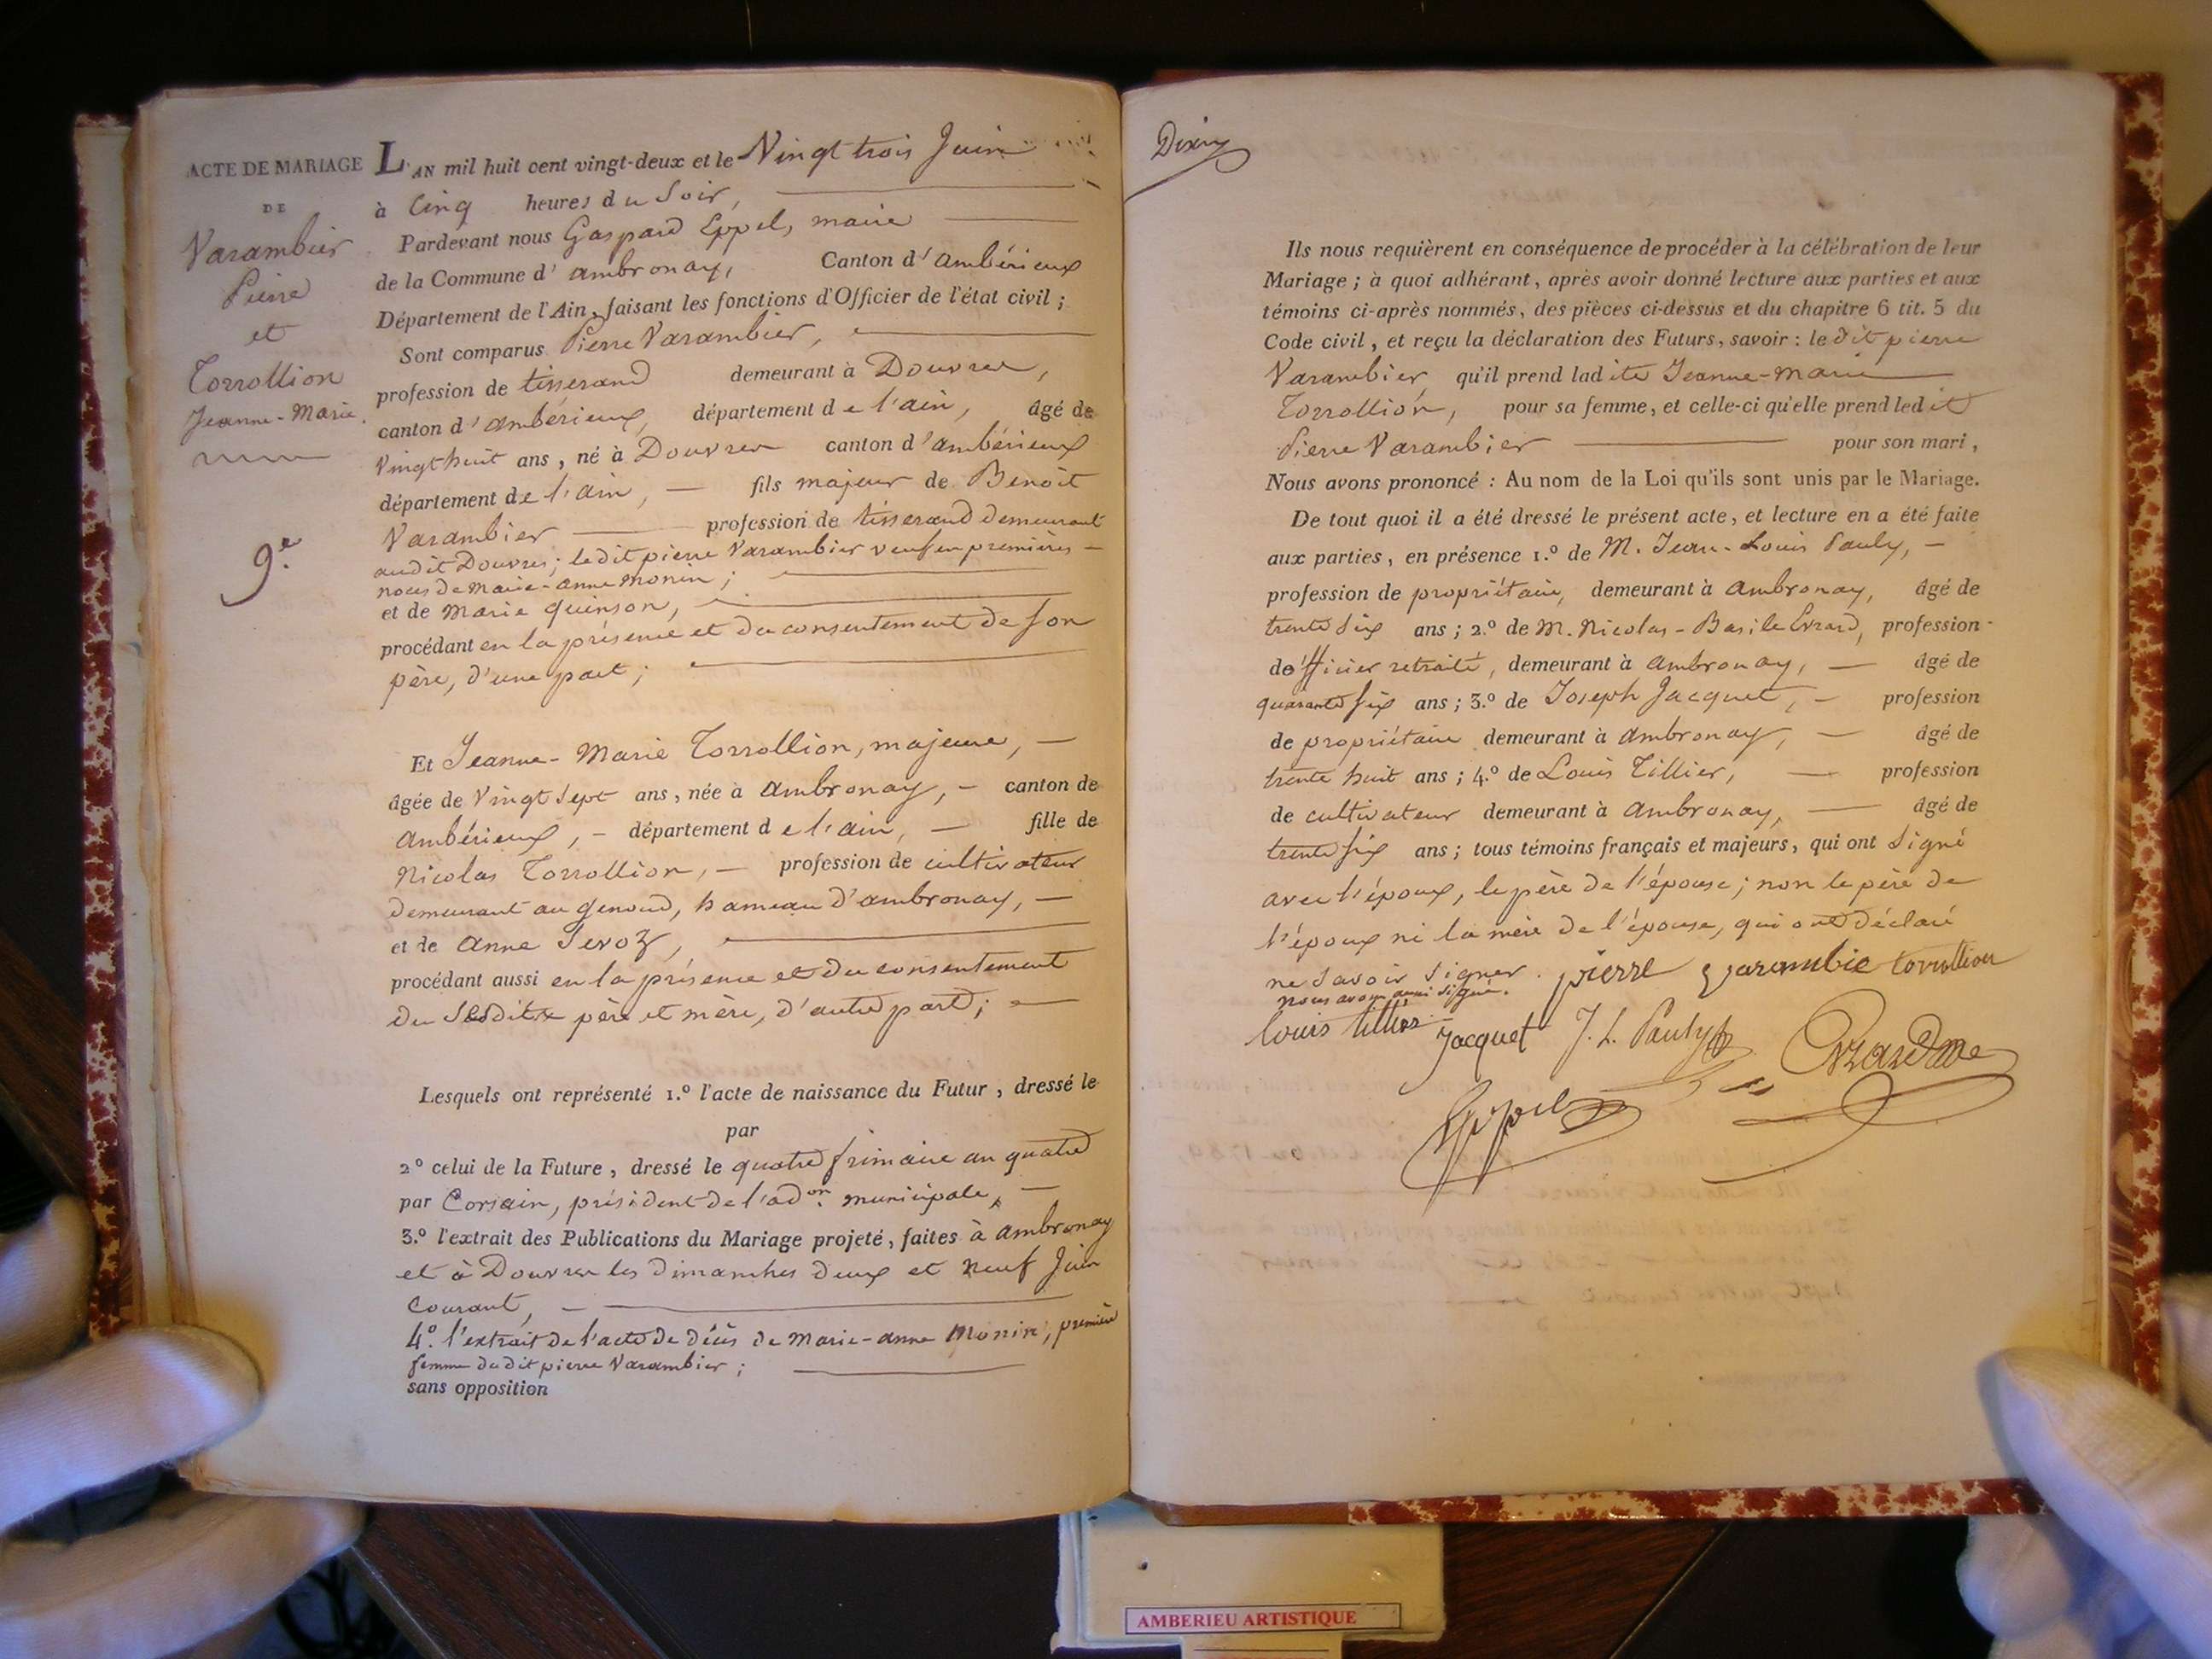 ACTE DE MARIAGE
DE
Varambier
Pierre
et
Torrollion
Jeanne-Marie.
9.e
L'AN mil huit cent vingt-deux et le Vingt trois Juin
à Cinq heures du Soir,
Pardevant nous Gaspard Eppel, maire
de la Commune d'ambronay, Canton d'ambérieux
Département de l'Ain, faisant les fonctions d'Officier de l'état civil ;
Sont comparus Pierre Varambier,
profession de tisserand demeurant à Douvres,
canton d'ambérieux, département de l'ain, âgé de
Vingt huit ans, né à Douvres canton d'ambérieux
département de l'ain, fils majeur de Benoît
Varambier profession de tisserand demeurant
audit Douvres; ledit pierre Varambier veuf en premières
noces de marie-anne monin;
et de marie quinson,
procédant en la présence et du consentement de son
père, d'une part;
Et Jeanne-Marie Torrollion, majeure,
âgée de Vingt Sept ans, née à ambronay, canton de
ambérieux, département de l'ain, fille de
Nicolas Torrollion, profession de cultivateur
demeurant au genoud, hameau d'ambronay,
et de anne Sevoz,
procédant aussi en la présence et du consentement
du père et mère, d'autre part;
Lesquels ont représenté 1.º l'acte de naissance du Futur, dressé le
par
2º celui de la Future, dressé le quatre frimaire an quatre
par Corsain, président de l'adon. municipale,
3.º l'extrait des Publications du Mariage projeté, faites à ambronay
et à Douvres les dimanches deux et neuf Juin
Courant,
4.º l'extrait de l'acte de décès de marie-anne Monin, première
femme dudit pierre Varambier;
sans opposition
Ils nous requièrent en conséquence de procéder à la célébration de leur
Mariage ; à quoi adhérant, après avoir donné lecture aux parties et aux
témoins ci-après nommés, des pièces ci-dessus et du chapitre 6 tit. 5 du
Code civil, et reçu la déclaration des Futurs, savoir : le dit pierre
Varambier qu'il prend ladite Jeanne-marie
Torrollion, pour sa femme, et celle-ci qu'elle prend ledit
Pierre Varambier pour son mari,
Nous avons prononcé : Au nom de la Loi qu'ils sont unis par le Mariage.
De tout quoi il a été dressé le présent acte, et lecture en a été faite
aux parties, en présence 1.º de M. Jean-Louis Pauly,
profession de propriétaire, demeurant à ambronay, âgé de
trente six ans ; 2.º de M. Nicolas-Basile Evrard, profession
d'officier retraité, demeurant à ambronay, âgé de
quarante six ans ; 3.º de Joseph Jacquet, profession
de propriétaire demeurant à ambronay, âgé de
trente huit ans ; 4.º de Louis Tillier, profession
de cultivateur demeurant à ambronay, âgé de
trente six ans ; tous témoins français et majeurs, qui ont Signé
avec l'époux, le père de l'épouse; non le père de
l'époux ni la mère de l'épouse, qui ont déclaré
ne savoir signer. pierre varambie torrollion
nous avons aussi signé.
louis tillier Jacquet J. L. Pauly
Eppel
AMBERIEU ARTISTIQUE